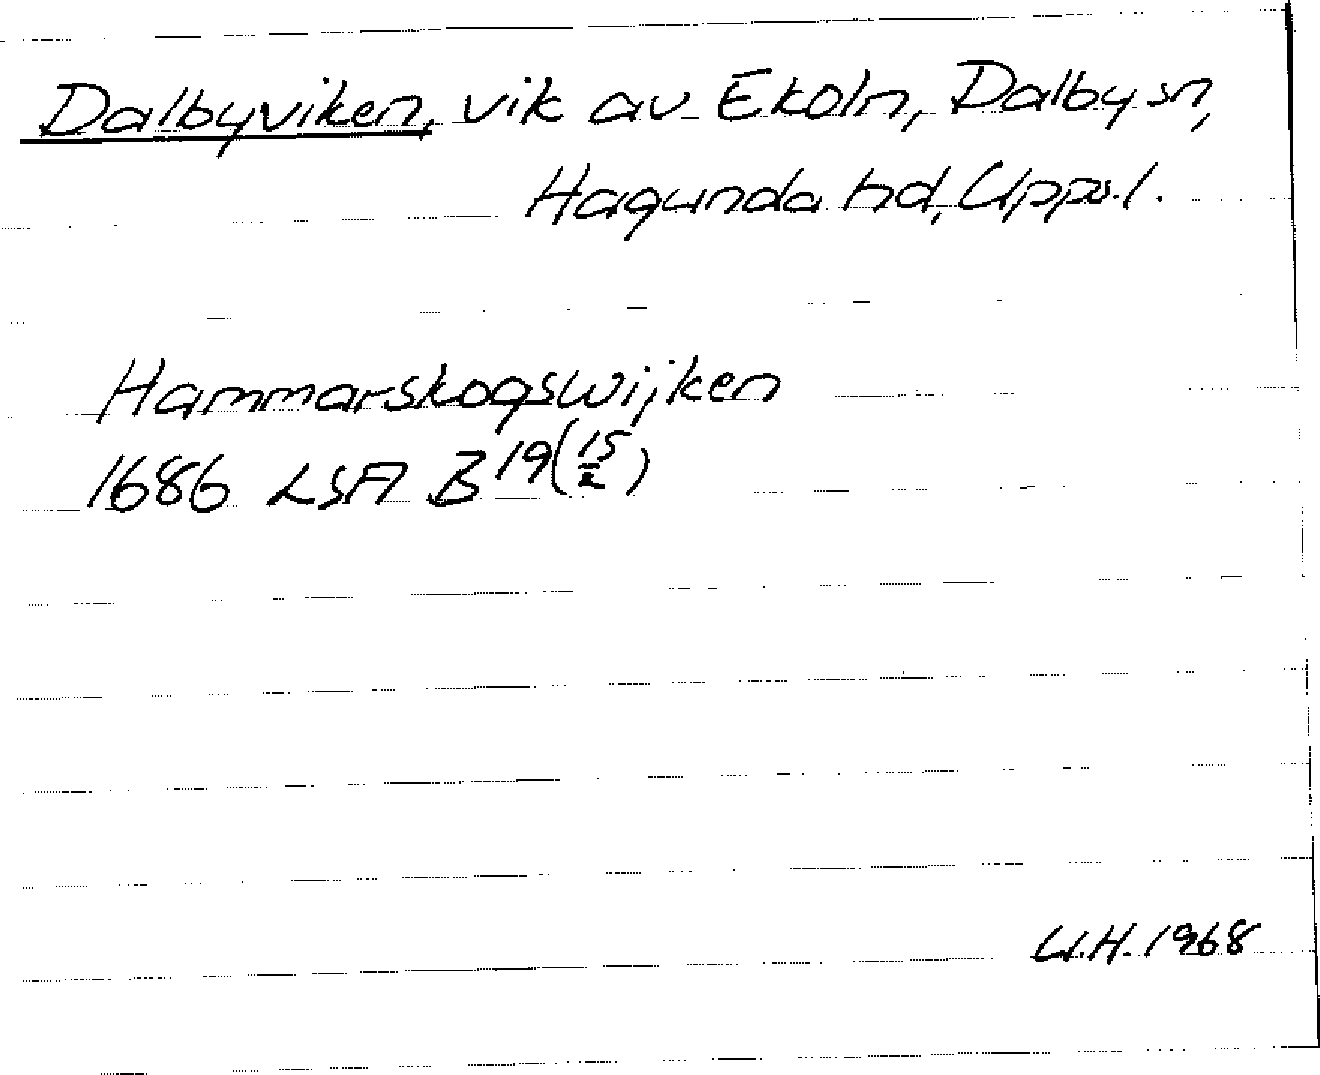 Dalbyviken, vik av Ekoln, Dalby sn,
Hagunda hd, Uppl.
Hammarskogswijken
1686 LSA B 19 (15/2)
U.H. 1968